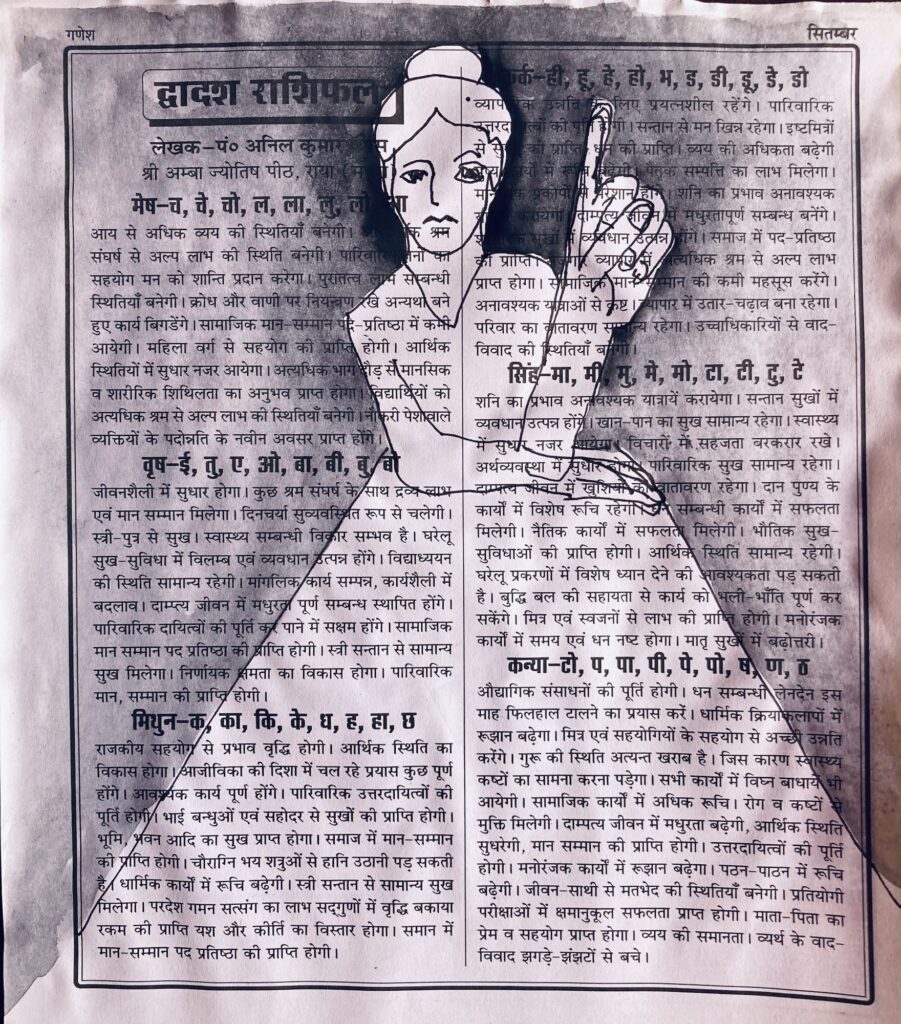 गणेश
सितम्बर
द्वादश राशिफल
लेखक-पं० अनिल कुमार
श्री अम्बा ज्योतिष पीठ, राया
मेष-च, चे, चो, ल, ला, लु,
आय से अधिक व्यय की स्थितियाँ बनेगी। श्रम
संघर्ष से अल्प लाभ की स्थिति बनेगी। पारिवारिक
सहयोग मन को शान्ति प्रदान करेगा। पुरातत्व लाभ सम्बन्धी
स्थितियाँ बनेगी। क्रोध और वाणी पर नियन्त्रण रखे अन्यथा बने
हुए कार्य बिगडेंगे। सामाजिक मान-सम्मान पद-प्रतिष्ठा में कमी
आयेगी। महिला वर्ग से सहयोग की प्राप्ति होगी। आर्थिक
स्थितियों में सुधार नजर आयेगा। अत्यधिक भाग दौड़ से मानसिक
व शारीरिक शिथिलता का अनुभव प्राप्त होगा। विद्यार्थियों को
अत्यधिक श्रम से अल्प लाभ की स्थितियाँ बनेगी। नौकरी पेशेवाले
व्यक्तियों के पदोन्नति के नवीन अवसर प्राप्त होंगे।
वृष-ई, तु, ए, ओ, बा, बी, बु, बो
जीवनशैली में सुधार होगा। कुछ श्रम संघर्ष के साथ द्रव्य लाभ
एवं मान सम्मान मिलेगा। दिनचर्या सुव्यवस्थित रूप से चलेगी।
स्त्री-पुत्र से सुख। स्वास्थ्य सम्बन्धी विकार सम्भव है। घरेलू
सुख-सुविधा में विलम्ब एवं व्यवधान उत्पन्न होंगे। विद्याध्ययन
की स्थिति सामान्य रहेगी। मांगलिक कार्य सम्पन्न, कार्यशैली में
बदलाव। दाम्प्त्य जीवन में मधुरता पूर्ण सम्बन्ध स्थापित होंगे।
पारिवारिक दायित्वों की पूर्ति कर पाने में सक्षम होंगे। सामाजिक
मान सम्मान पद प्रतिष्ठा की प्राप्ती होगी। स्त्री सन्तान से सामान्य
सुख मिलेगा। निर्णायक क्षमता का विकास होगा। पारिवारिक
मान, सम्मान की प्राप्ति होगी।
मिथुन-क, का, कि, के, ध, ह, हा, छ
राजकीय सहयोग से प्रभाव वृद्धि होगी। आर्थिक स्थिति का
विकास होगा। आजीविका की दिशा में चल रहे प्रयास कुछ पूर्ण
होंगे। आवश्यक कार्य पूर्ण होंगे। पारिवारिक उत्तरदायित्वों की
पूर्ति होगी। भाई बन्धुओं एवं सहोदर से सुखों की प्राप्ति होगी।
भूमि, भवन आदि का सुख प्राप्त होगा। समाज में मान-सम्मान
की प्राप्ति होगी। चौराग्नि भय शत्रुओं से हानि उठानी पड़ सकती
है। धार्मिक कार्यों में रूचि बढ़ेगी। स्त्री सन्तान से सामान्य सुख
मिलेगा। परदेश गमन सत्संग का लाभ सद्‌गुणों में वृद्धि बकाया
रकम की प्राप्ति यश और कीर्ति का विस्तार होगा। समान में
मान-सम्मान पद प्रतिष्ठा की प्राप्ति होगी।
कर्क-ही, हू, हे, हो, भ, ड, डी, डू, डे, डो
उन्नति के लिए प्रयत्नशील रहेंगे। पारिवारिक
की पूर्ति होगी। सन्तान से मन खिन्न रहेगा। इष्टमित्रों
से की प्राप्ति। धन की प्राप्ति। व्यय की अधिकता बढ़ेगी
में पैतृक सम्पत्ति का लाभ मिलेगा।
प्रकोपों परेशान होंगे। शनि का प्रभाव अनावश्यक
दाम्पत्य जीवन में मधुरतापूर्ण सम्बन्ध बनेंगे।
सुखों में व्यवधान उत्पन्न होंगे। समाज में पद-प्रतिष्ठा
की प्राप्ति। अत्यधिक श्रम से अल्प लाभ
प्राप्त होगा। सामाजिक मान सम्मान की कमी महसूस करेंगे।
अनावश्यक यात्राओं से कष्ट। व्यापार में उतार-चढ़ाव बना रहेगा।
परिवार का वातावरण सामान्य रहेगा। उच्चाधिकारियों से वाद-
विवाद की स्थितियाँ बनेगी।
सिंह-मा, मी, मु, मे, मो, टा, टी, टु, टे
शनि का प्रभाव अनावश्यक यात्रायें करायेगा। सन्तान सुखों में
व्यवधान उत्पन्न होंगे। खान-पान का सुख सामान्य रहेगा। स्वास्थ्य
में सुधार नजर आयेगा। विचारों में सहजता बरकरार रखे।
अर्थव्यवस्था में सुधार होगा। पारिवारिक सुख सामान्य रहेगा।
दाम्पत्य जीवन में खुशियों का वातावरण रहेगा। दान पुण्य के
कार्यों में विशेष रूचि रहेगी। सम्बन्धी कार्यों में सफलता
मिलेगी। नैतिक कार्यों में सफलता मिलेगी। भौतिक सुख-
सुविधाओं की प्राप्ति होगी। आर्थिक स्थिति सामान्य रहेगी।
घरेलू प्रकरणों में विशेष ध्यान देने की आवश्यकता पड़ सकती
है। बुद्धि बल की सहायता से कार्य को भली-भाँति पूर्ण कर
सकेंगे। मित्र एवं स्वजनों से लाभ की प्राप्ति होगी। मनोरंजक
कार्यों में समय एवं धन नष्ट होगा। मातृ सुखों में बढ़ोत्तरी।
कन्या-टो, प, पा, पी, पे, पो, ष, ण, ठ
औद्यागिक संसाधनों की पूर्ति होगी। धन सम्बन्धी लेनदेन इस
माह फिलहाल टालने का प्रयास करें। धार्मिक क्रियाकलापों में
रूझान बढ़ेगा। मित्र एवं सहयोगियों के सहयोग से अच्छी उन्नति
करेंगे। गुरू की स्थिति अत्यन्त खराब है। जिस कारण स्वास्थ्य
कष्टों का सामना करना पड़ेगा। सभी कार्यों में विघ्न बाधायें भी
आयेगी। सामाजिक कार्यों में अधिक रूचि। रोग व कष्टों से
मुक्ति मिलेगी। दाम्पत्य जीवन में मधुरता बढ़ेगी, आर्थिक स्थिति
सुधरेगी, मान सम्मान की प्राप्ति होगी। उत्तरदायित्वों की पूर्ति
होगी। मनोरंजक कार्यों में रूझान बढ़ेगा। पठन-पाठन में रूचि
बढ़ेगी। जीवन-साथी से मतभेद की स्थितियाँ बनेगी। प्रतियोगी
परीक्षाओं में क्षमानुकूल सफलता प्राप्त होगी। माता-पिता का
प्रेम व सहयोग प्राप्त होगा। व्यय की समानता। व्यर्थ के वाद-
विवाद झगड़े-झंझटों से बचे।